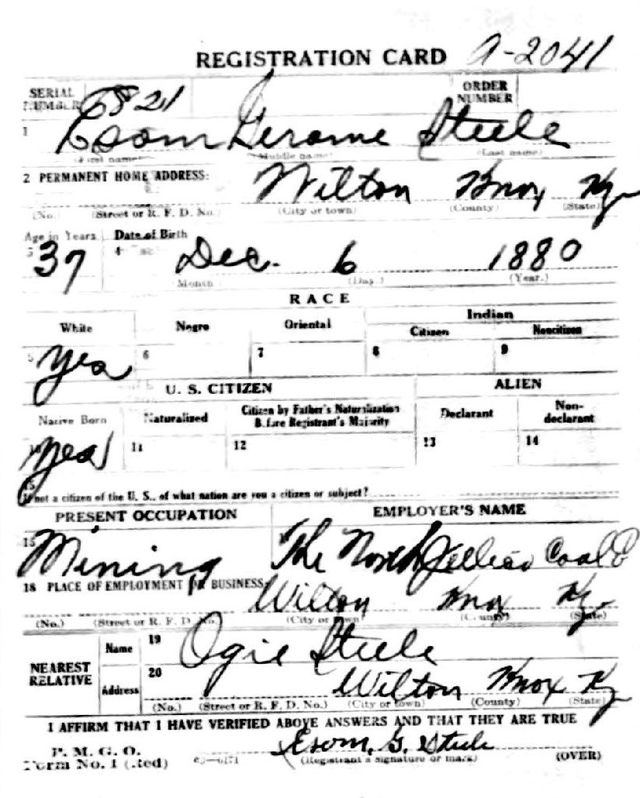 REGISTRATION CARD A-2041
SERIAL NUMBER 6821 ORDER NUMBER
1 Esom Gerome Steele
(First name) (Middle name) (Last name)
2 PERMANENT HOME ADDRESS: Wilton Knox Ky
(No.) (Street or R. F. D. No.) (City or town) (County) (State)
Age in Years Date of Birth
37 4 Dec. 6 1880
Month (Day.) (Year.)
RACE
White Negro Oriental Indian
Citizen Noncitizen
5 yes 6 7 8 9
U. S. CITIZEN ALIEN
Native Born Naturalized Citizen by Father's Naturalization Before Registrant's Majority Declarant Non-declarant
10 yes 11 12 13 14
15
If not a citizen of the U. S., of what nation are you a citizen or subject?
PRESENT OCCUPATION EMPLOYER'S NAME
Mining The North Jellico Coal
18 PLACE OF EMPLOYMENT OR BUSINESS: Wilton Knox Ky
(No.) (Street or R. F. D. No.) (City or town) (County) (State)
NEAREST RELATIVE
Name 19 Ogie Steele
Address 20 Wilton Knox Ky
(No.) (Street or R. F. D. No.) (City or town) (County) (State)
I AFFIRM THAT I HAVE VERIFIED ABOVE ANSWERS AND THAT THEY ARE TRUE
P. M. G. O.
Form No. 1 (Red) Esom. G. Steele
(Registrant's signature or mark) (OVER)